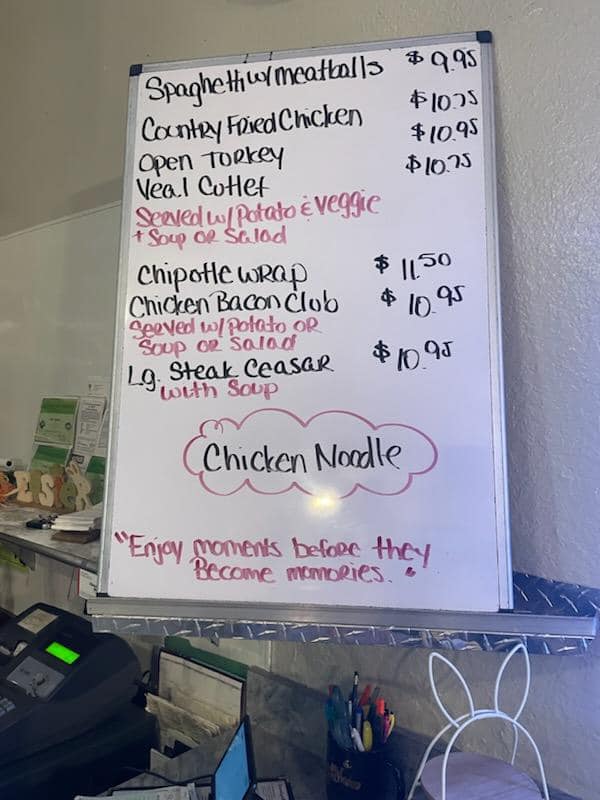 Spaghetti w/ meatballs $9.95
Country Fried Chicken $10.75
Open Turkey $10.95
Veal Cutlet $10.75
Served w/ Potato & Veggie
+ Soup or Salad
Chipotle Wrap $11.50
Chicken Bacon Club $10.95
Served w/ Potato or
Soup or Salad
Lg. Steak Ceasar $10.95
with Soup
Chicken Noodle
"Enjoy moments before they
Become memories."
EASTER